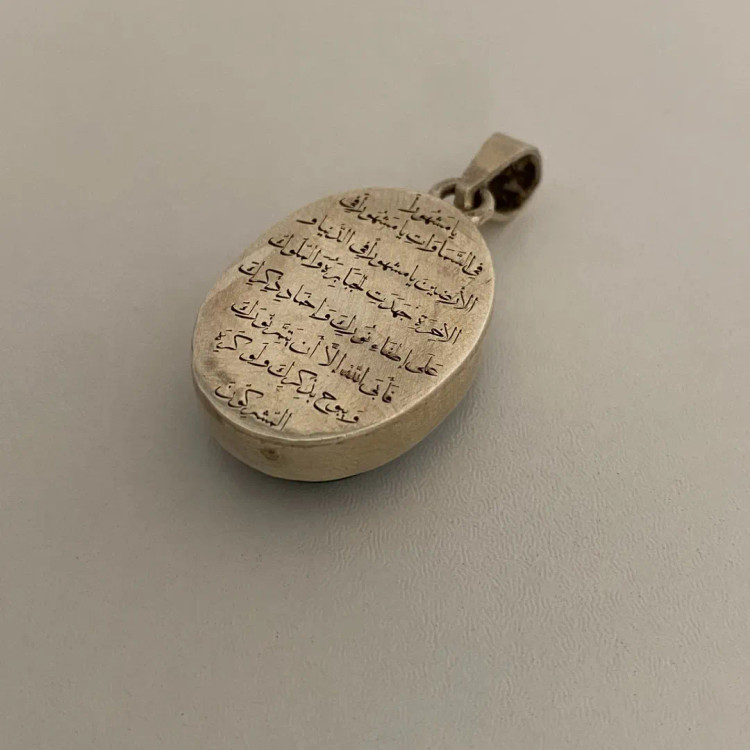 يا مشهوراً
في السماوات يا مشهوراً في
الأرضين يا مشهوراً في الدنيا و
الآخرة جهدت الجبابرة والملوك
على إطفاء نورك وإخماد ذكرك
فأبى الله إلا أن يتم نورك
ويبوح بذكرك ولو كره
المشركون